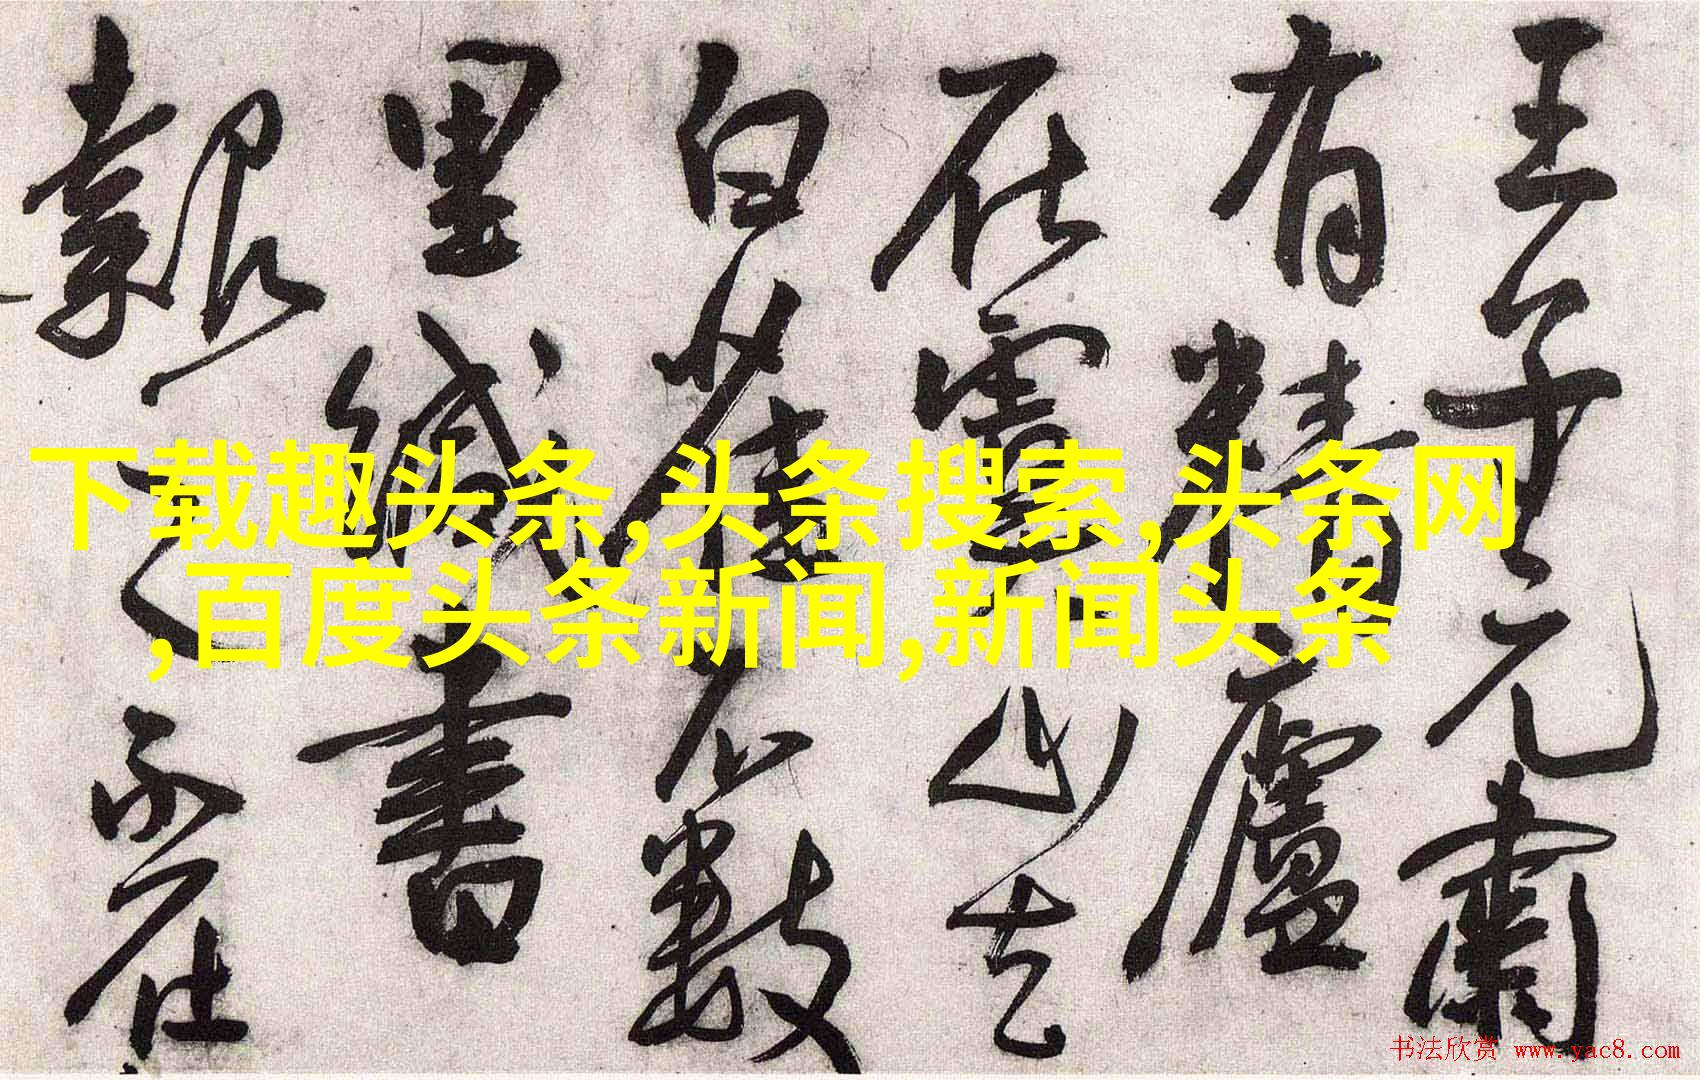 王子元肅
有精廬
在雲山去
白數
里緘書
報之不在
下载趣头条,头条搜索,头条网
,百度头条新闻,新闻头条
书法欣赏 www.yac8.com